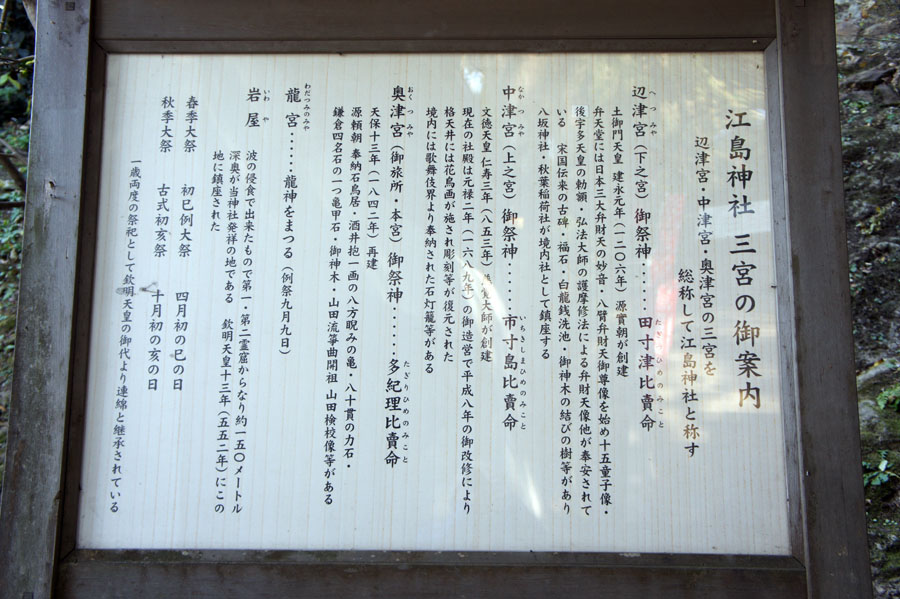 江島神社 三宮の御案内
辺津宮・中津宮・奥津宮の三宮を
総称して江島神社と称す
へつみや
辺津宮(下之宮)御祭神・・・・・・田寸津比賣命
土御門天皇 建永元年(一二〇六年) 源實朝が創建
弁天堂には日本三大弁財天の妙音・八臂弁財天御尊像を始め十五童子像・
後宇多天皇の勅額・弘法大師の護摩修法による弁財天像他が奉安されて
いる 宋国伝来の古碑・福石・白龍銭洗池・御神木の結びの樹等があり
八坂神社・秋葉稲荷社が境内社として鎮座する
なかつみや
いちきしまひめのみこと
中津宮(上之宮)御祭神・・・・・・市寸島比賣命
文徳天皇 仁寿三年(八五三年) 大師が創建
現在の社殿は元禄二年(一六八九年)の御造営で平成八年の御改修により
格天井には花鳥画が施され彫刻等が復元された
境内には歌舞伎界より奉納された石灯籠等がある
おくつみや
たぎりひめのみこと
奥津宮(御旅所・本宮)御祭神・・・・・・多紀理比賣命
天保十三年(一八四二年)再建
源頼朝 奉納石鳥居・酒井抱一画の八方睨みの亀・八十貫の力石・
鎌倉四名石の一つ亀甲石・御神木・山田流箏曲開祖 山田検校像等がある
わだつみのみや
龍宮・・・・・龍神をまつる(例祭九月九日)
いわや
岩屋
波の侵食で出来たもので第一・第二霊窟からなり約一五〇メートル
深奥が当神社発祥の地である 欽明天皇十三年(五五二年)にこの
地に鎮座された
春季大祭 初巳例大祭 四月初の巳の日
秋季大祭 古式初亥祭 十月初の亥の日
一歳両度の祭祀として欽明天皇の御代より連綿と継承されている